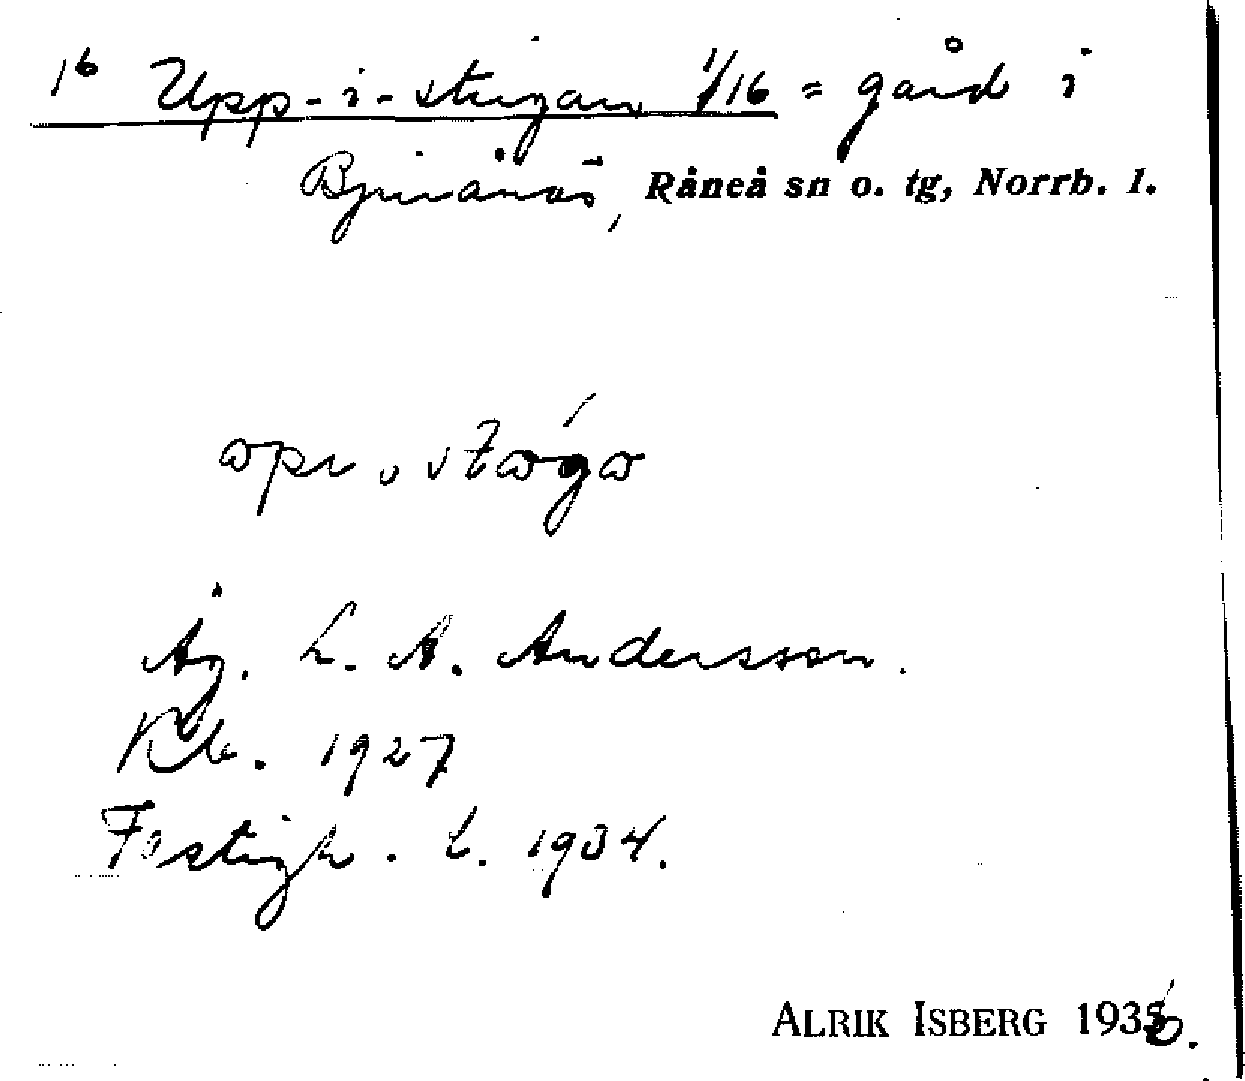 1b Upp-i-stugan 1/16 = gård i
Bjursnäs, Råneå sn o. tg, Norrb. l.
Äg. L. A. Andersson.
Kb. 1927
Fastigh. l. 1934.
ALRIK ISBERG 1936.